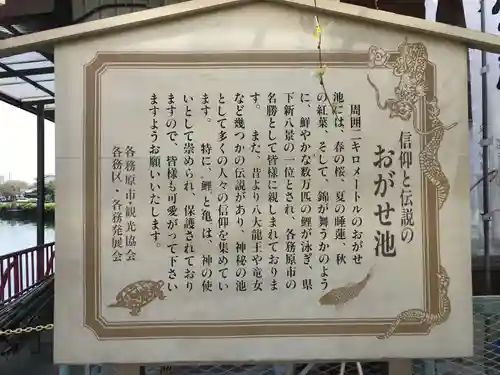 信仰と伝説の
おがせ池
周囲二キロメートルのおがせ
池には、春の桜、夏の睡蓮、秋
の紅葉、そして、錦が舞うかのよう
に、鮮やかな数万匹の鯉が泳ぎ、県
下新八景の一位とされ、各務原市の
名勝として皆様に親しまれておりま
す。また、昔より八大龍王や竜女
など幾つかの伝説があり、神秘の池
として多くの人々の信仰を集めてい
ます。特に、鯉と亀は、神の使
いとして崇められ、保護されており
ますので、皆様も可愛がって下さい
ますようお願いいたします。
各務原市観光協会
各務区・各務発展会